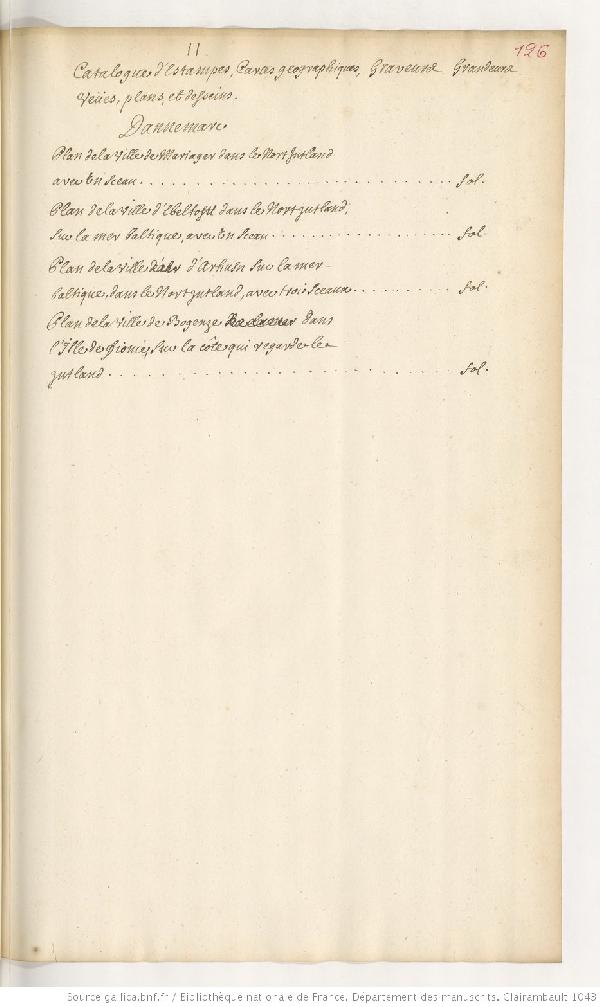 11
126
Catalogue d'Estampes, Cartes geographiques, Graveure Grandeure
Veües, plans, et desseins.
Dannemarc
Plan de la Ville de Mariager dans le Nort Jutland
avec un Sceau. fol.
Plan de la ville d'Ebeltoft dans le Nort jutland,
sur la mer baltique, avec un Sceau fol.
Plan de la ville d'Arhusn sur la mer
baltique, dans le Nort jutland, avec trois Sceaux. fol.
Plan de la Ville de Bogenze dans
l'Isle de Fionie, sur la côte qui regarde le
jutland fol.
Source gallica.bnf.fr / Bibliothèque nationale de France. Département des manuscrits. Clairambault 1043